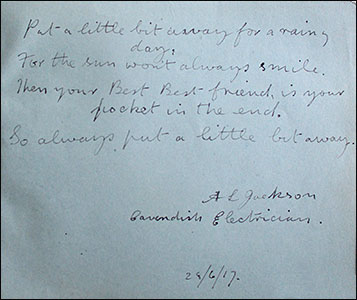 Put a little bit away for a rainy
day,
For the sun won't always smile.
Then your Best Best friend is your
pocket in the end.
So always put a little bit away.
A E Jackson
Cavendish Electrician.
29/6/17.